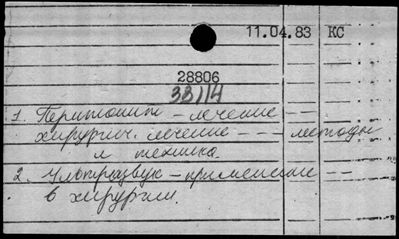 11.04.83 КС
28806
33/14
1. Перитонит – лечение – –
хирургич. лечение – – – методы
и техника.
2. Ультразвук – применение – –
в хирургии.